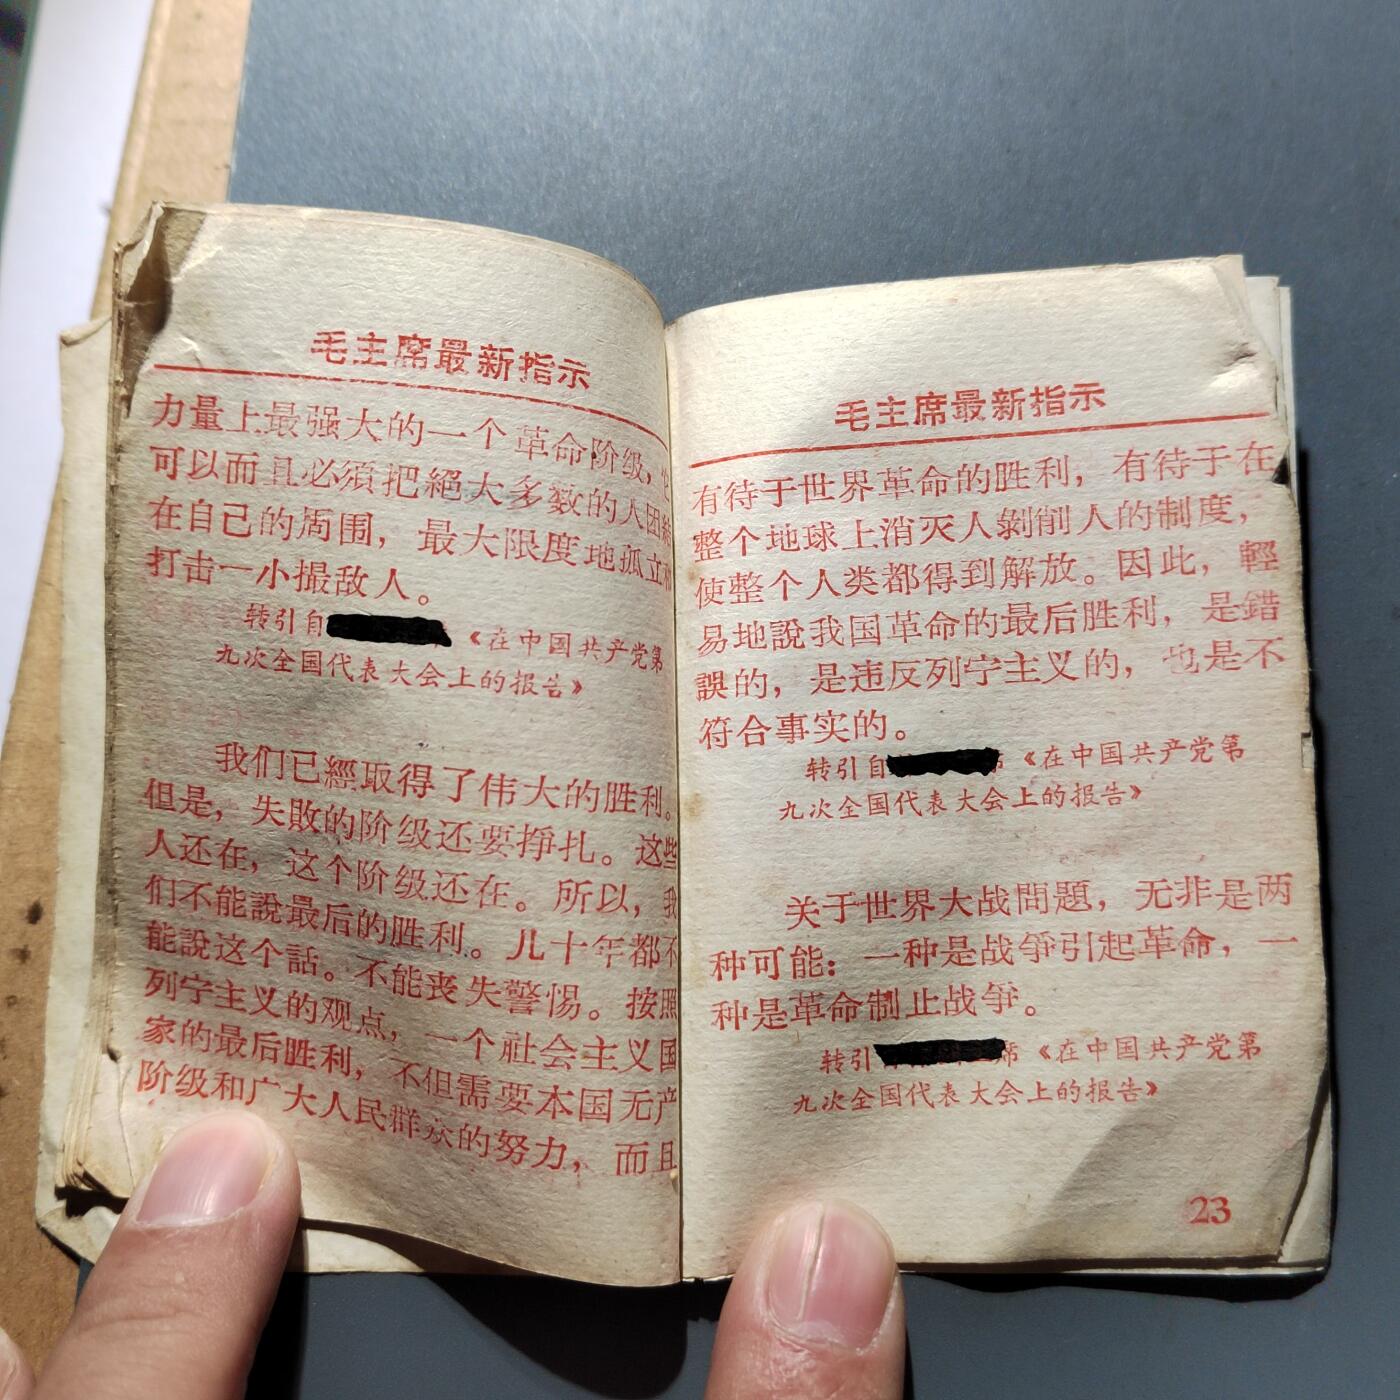 毛主席最新指示
力量上最强大的一个革命阶级，它
可以而且必須把絕大多数的人团結
在自己的周围，最大限度地孤立和
打击一小撮敌人。
转引自 《在中国共产党第
九次全国代表大会上的报告》
我们已經取得了伟大的胜利。
但是，失敗的阶级还要挣扎。这些
人还在，这个阶级还在。所以，我
们不能說最后的胜利。几十年都不
能說这个話。不能丧失警惕。按照
列宁主义的观点，一个社会主义国
家的最后胜利，不但需要本国无产
阶级和广大人民群众的努力，而且
毛主席最新指示
有待于世界革命的胜利，有待于在
整个地球上消灭人剝削人的制度，
使整个人类都得到解放。因此，輕
易地說我国革命的最后胜利，是錯
誤的，是违反列宁主义的，也是不
符合事实的。
转引自 席《在中国共产党第
九次全国代表大会上的报告》
关于世界大战問題，无非是两
种可能：一种是战爭引起革命，一
种是革命制止战爭。
转引 席《在中国共产党第
九次全国代表大会上的报告》
23